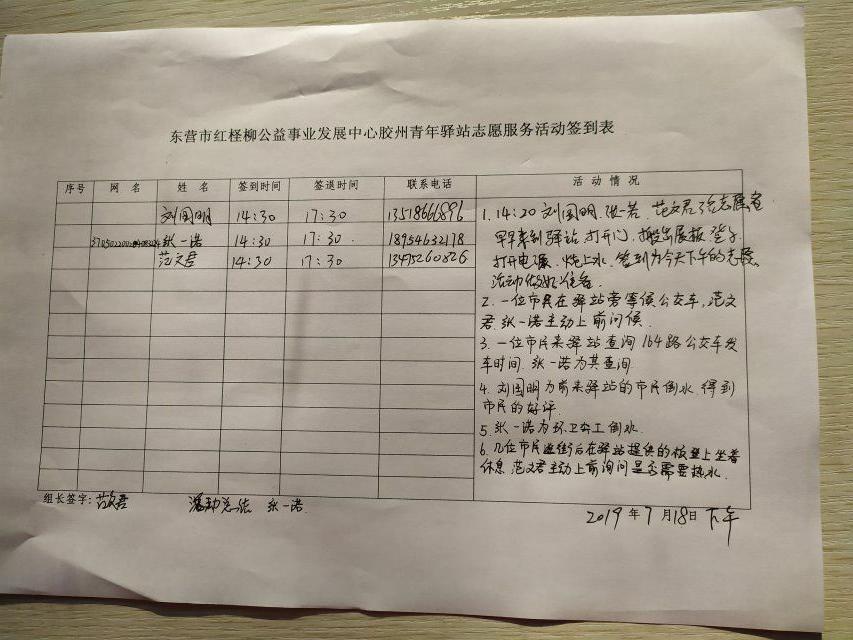 东营市红柽柳公益事业发展中心胶州青年驿站志愿服务活动签到表
序号 网名 姓名 签到时间 签退时间 联系电话 活动情况
刘国明 14:30 17:30 13518666896
张一诺 14:30 17:30. 18954632178
范文君 14:30 17:30 13475260826
1. 14:20 刘国明. 张一若. 范文君 志愿者
早早来到驿站 打开门, 搬出展板. 凳子
打开电源. 烧上水. 签到为今天下午的志愿
活动做好准备.
2. 一位市民在驿站旁等候公交车, 范文
君. 张一诺主动上前问候.
3. 一位市民来驿站查询164路公交车发
车时间. 张一诺为其查询.
4. 刘国明为前来驿站的市民倒水. 得到
市民的好评.
5. 张一诺为环卫工倒水.
6. 几位市民逛街后在驿站提供的板凳上坐着
休息. 范文君主动上前询问是否需要热水.
组长签字: 范文君 活动总结 张一诺
2019年7月18日下午